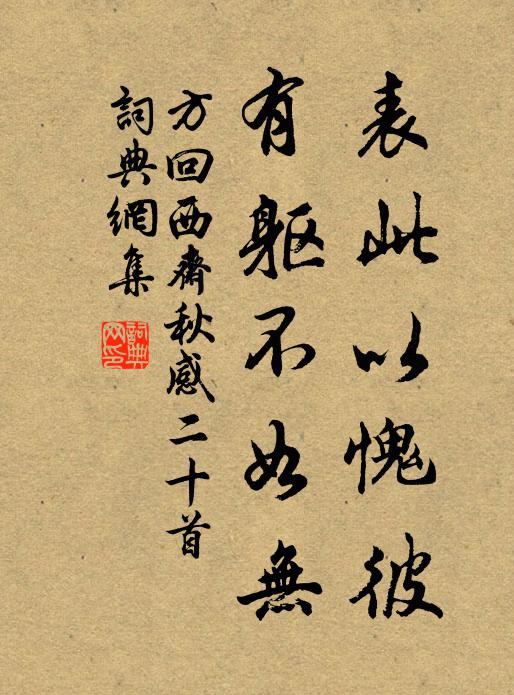 表此以愧彼
有軀不如無
方回西齋秋感二十首
詞典網集
詞典
网印